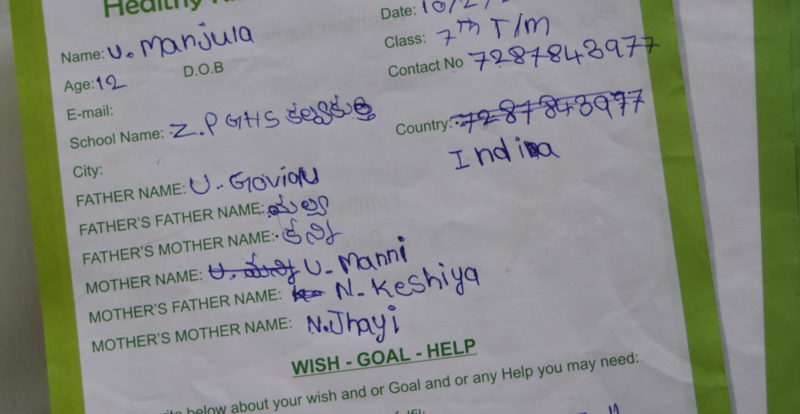 Healthy
Date: 10/2/
Name: U. Manjula
Class: 7th T/M
Age: 12 D.O.B
Contact No 7287843977
E-mail:
School Name: Z.P GHS
Country: 7287843977
India
City:
FATHER NAME: U. Govidu
FATHER'S FATHER NAME:
FATHER'S MOTHER NAME:
MOTHER NAME: U. Manni
MOTHER'S FATHER NAME: N. Keshiya
MOTHER'S MOTHER NAME: N. Jhayi
WISH - GOAL - HELP
below about your wish and or Goal and or any Help you may need: